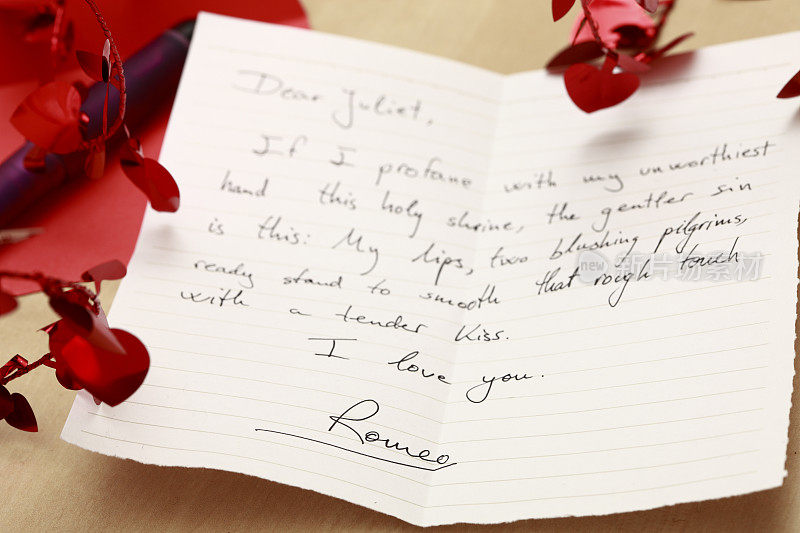 Dear Juliet,
If I profane with my unworthiest
hand this holy shrine, the gentler sin
is this: My lips, two blushing pilgrims,
ready stand to smooth that rough touch
with a tender kiss.
I love you.
Romeo
new 新图视觉